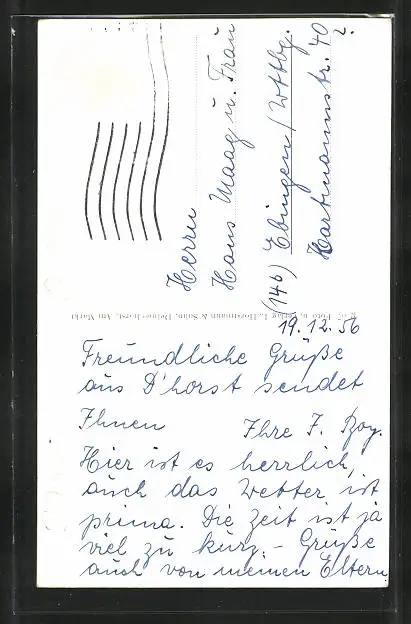 Herrn
Hans Maag u. Frau
(14b) Ebingen / Wttbg.
Hartmannstr. 40
Foto u. Verlag L. Horstmann & Sohn, Delmenhorst, Am Markt
19.12.56
Freundliche Grüße
aus D'horst sendet
Ihnen Ihre F.
Hier ist es herrlich,
auch das Wetter ist
prima. Die Zeit ist ja
viel zu kurz. - Grüße
auch von meinen Eltern